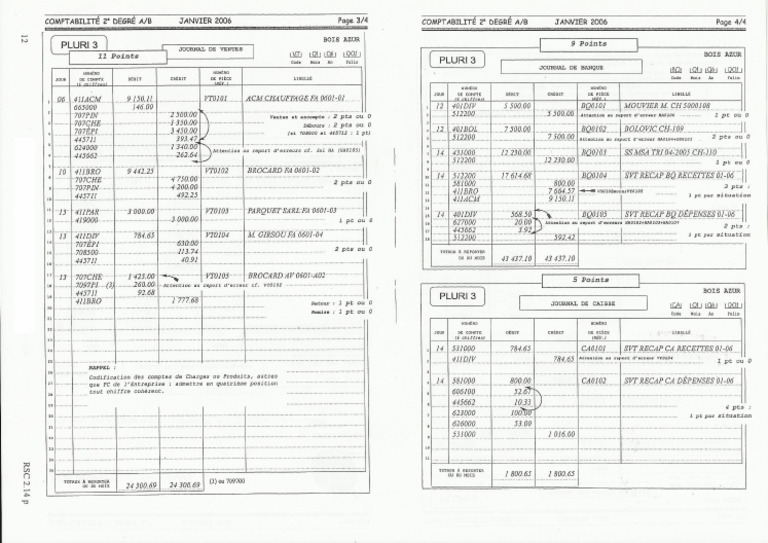 COMPTABILITÉ 2° DEGRÉ A/B JANVIER 2006 Page 3/4
12
BOIS AZUR
PLURI 3
JOURNAL DE VENTES
11 Points
Code Mois An Folio
JOUR NUMÉRO DE COMPTE (6 chiffres) DÉBIT CRÉDIT NUMÉRO DE PIÈCE (RÉF.) LIBELLÉ
06 411ACM 9 150.11 VT0101 ACM CHAUFFAGE FA 0601-01
665000 146.00
707PIN 2 500.00 Ventes et escompte : 2 pts ou 0
707CHE 1 350.00 Débours : 2 pts ou 0
707ÉPI 3 450.00 (si 708500 et 445712 : 1 pt)
445711 393.47
624000 1 340.00
445662 262.64
10 411BRO 9 442.25 VT0102 BROCARD FA 0601-02
707CHE 4 750.00 2 pts ou 0
707PIN 4 200.00
445711 492.25
13 411PAR 3 000.00 VT0103 PARQUET SARL FA 0601-03
419000 3 000.00 1 pt ou 0
13 411DIV 784.65 VT0104 M. GIRSOU FA 0601-04
707ÉPI 630.00
708500 113.74 2 pts ou 0
445711 40.91
13 707CHE 1 425.00 VT0105 BROCARD AV 0601-A02
7097PI (3) 260.00 Attention au report d'erreur cf. VT0102
445711 92.68
411BRO 1 777.68 Retour : 1 pt ou 0
Remise : 1 pt ou 0
RAPPEL :
Codification des comptes de Charges ou Produits, autres
que PC de l'Entreprise : admettre en quatrième position
tout chiffre cohérent.
TOTAUX À REPORTER OU DU MOIS 24 300.69 24 300.69 (3) ou 709700
RSC 2.14 p
COMPTABILITÉ 2° DEGRÉ A/B JANVIER 2006 Page 4/4
9 Points
BOIS AZUR
PLURI 3
JOURNAL DE BANQUE
Code Mois An Folio
JOUR NUMÉRO DE COMPTE (6 chiffres) DÉBIT CRÉDIT NUMÉRO DE PIÈCE (RÉF.) LIBELLÉ
12 401DIV 5 500.00 BQ0101 MOUVIER M. CH 5000108
512200 5 500.00 1 pt ou 0
12 401BOL 7 500.00 BQ0102 BOLOVIC CH-109
512200 7 500.00 2 pts ou 0
14 431000 12 230.00 BQ0103 SS MSA TRI 04-2005 CH-110
512200 12 230.00 1 pt ou 0
14 512200 17 614.68 BQ0104 SVT RECAP BQ RECETTES 01-06
581000 800.00 3 pts :
411BRO 7 664.57 1 pt par situation
411ACM 9 150.11
14 401DIV 568.50 BQ0105 SVT RECAP BQ DÉPENSES 01-06
627000 20.00
445662 3.92 2 pts :
512200 592.42 1 pt par situation
TOTAUX À REPORTER OU DU MOIS 43 437.10 43 437.10
5 Points
BOIS AZUR
PLURI 3
JOURNAL DE CAISSE
Code Mois An Folio
JOUR NUMÉRO DE COMPTE (6 chiffres) DÉBIT CRÉDIT NUMÉRO DE PIÈCE (RÉF.) LIBELLÉ
14 531000 784.65 CA0101 SVT RECAP CA RECETTES 01-06
411DIV 784.65 Attention au report d'erreur VT0104 1 pt ou 0
14 581000 800.00 CA0102 SVT RECAP CA DÉPENSES 01-06
606100 52.67
445662 10.33
623000 100.00 4 pts :
626000 53.00 1 pt par situation
531000 1 016.00
TOTAUX À REPORTER OU DU MOIS 1 800.65 1 800.65